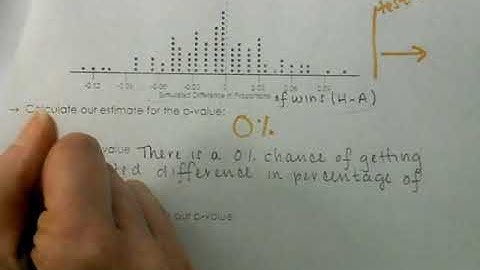 -0.12 -0.09 -0.06 -0.03 0 0.03 0.06 0.09
Simulated Difference in Proportions of wins (H-A)
→ Calculate our estimate for the p-value:
0%
value There is a 0% chance of getting
difference in percentage of
our p-value